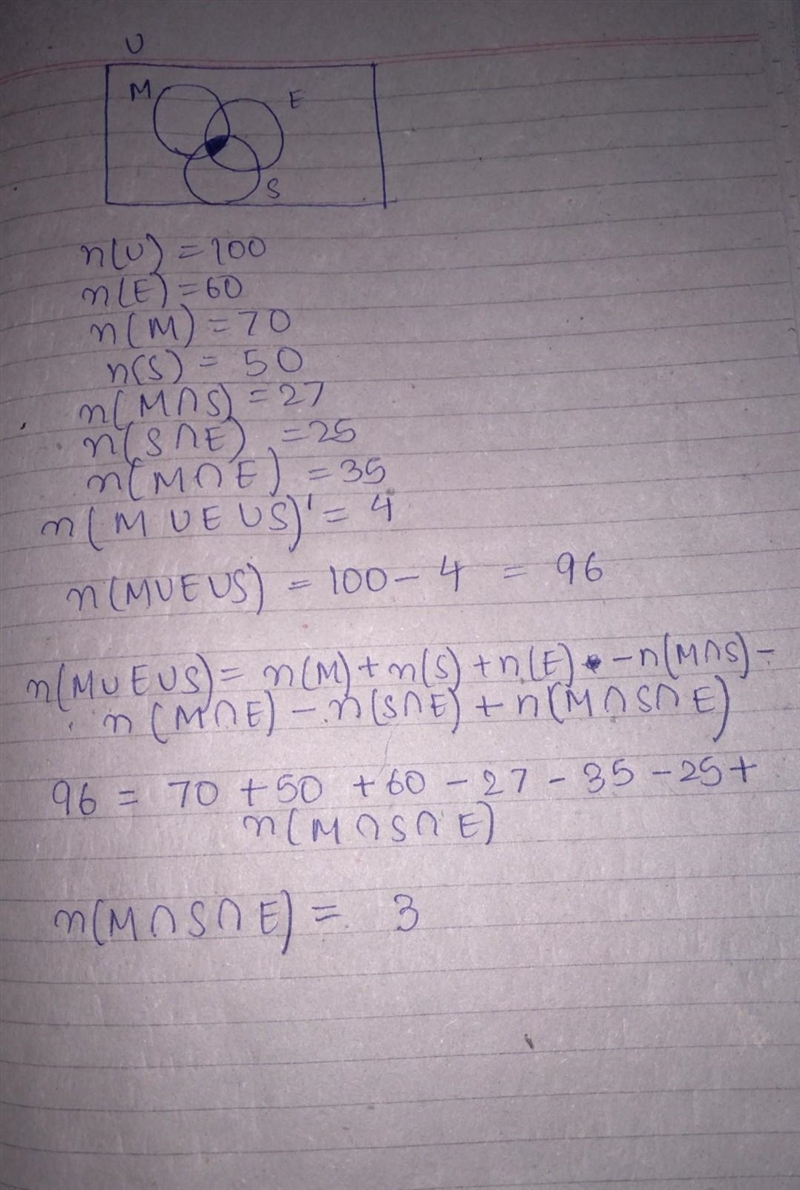 U
M
E
S
n(U) = 100
n(E) = 60
n(M) = 70
n(S) = 50
n(M∩S) = 27
n(S∩E) = 25
n(M∩E) = 35
n(M∪E∪S)' = 4
n(M∪E∪S) = 100 - 4 = 96
n(M∪E∪S) = n(M) + n(S) + n(E) - n(M∩S) -
n(M∩E) - n(S∩E) + n(M∩S∩E)
96 = 70 + 50 + 60 - 27 - 35 - 25 +
n(M∩S∩E)
n(M∩S∩E) = 3